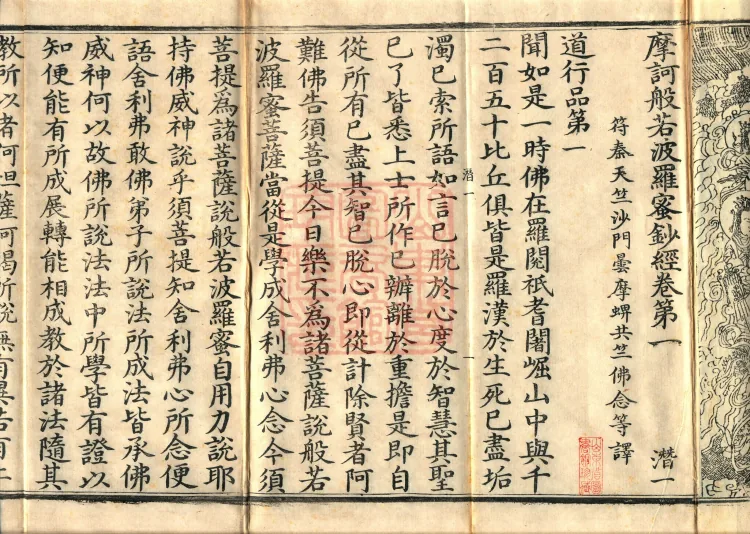 摩訶般若波羅蜜鈔經卷第一 潛一
符秦天竺沙門曇摩蜱共竺佛念等譯
道行品第一
聞如是一時佛在羅閱祇耆闍崛山中與千
二百五十比丘俱皆是羅漢於生死已盡垢
潛一 一
濁已索所語如言已脫於心度於智慧其聖
已了皆悉上士所作已辦離於重擔是即自
從所有已盡其智已脫心即從計除賢者阿
難佛告須菩提今日樂不為諸菩薩說般若
波羅蜜菩薩當從是學成舍利弗心念今須
菩提為諸菩薩說般若波羅蜜自用力說耶
持佛威神說乎須菩提知舍利弗心所念便
語舍利弗敢佛弟子所說法所成法皆承佛
威神何以故佛所說法法中所學皆有證以
知便能有所成展轉能相成教於諸法隨其
教所以者何怛薩阿竭所說無有異若有